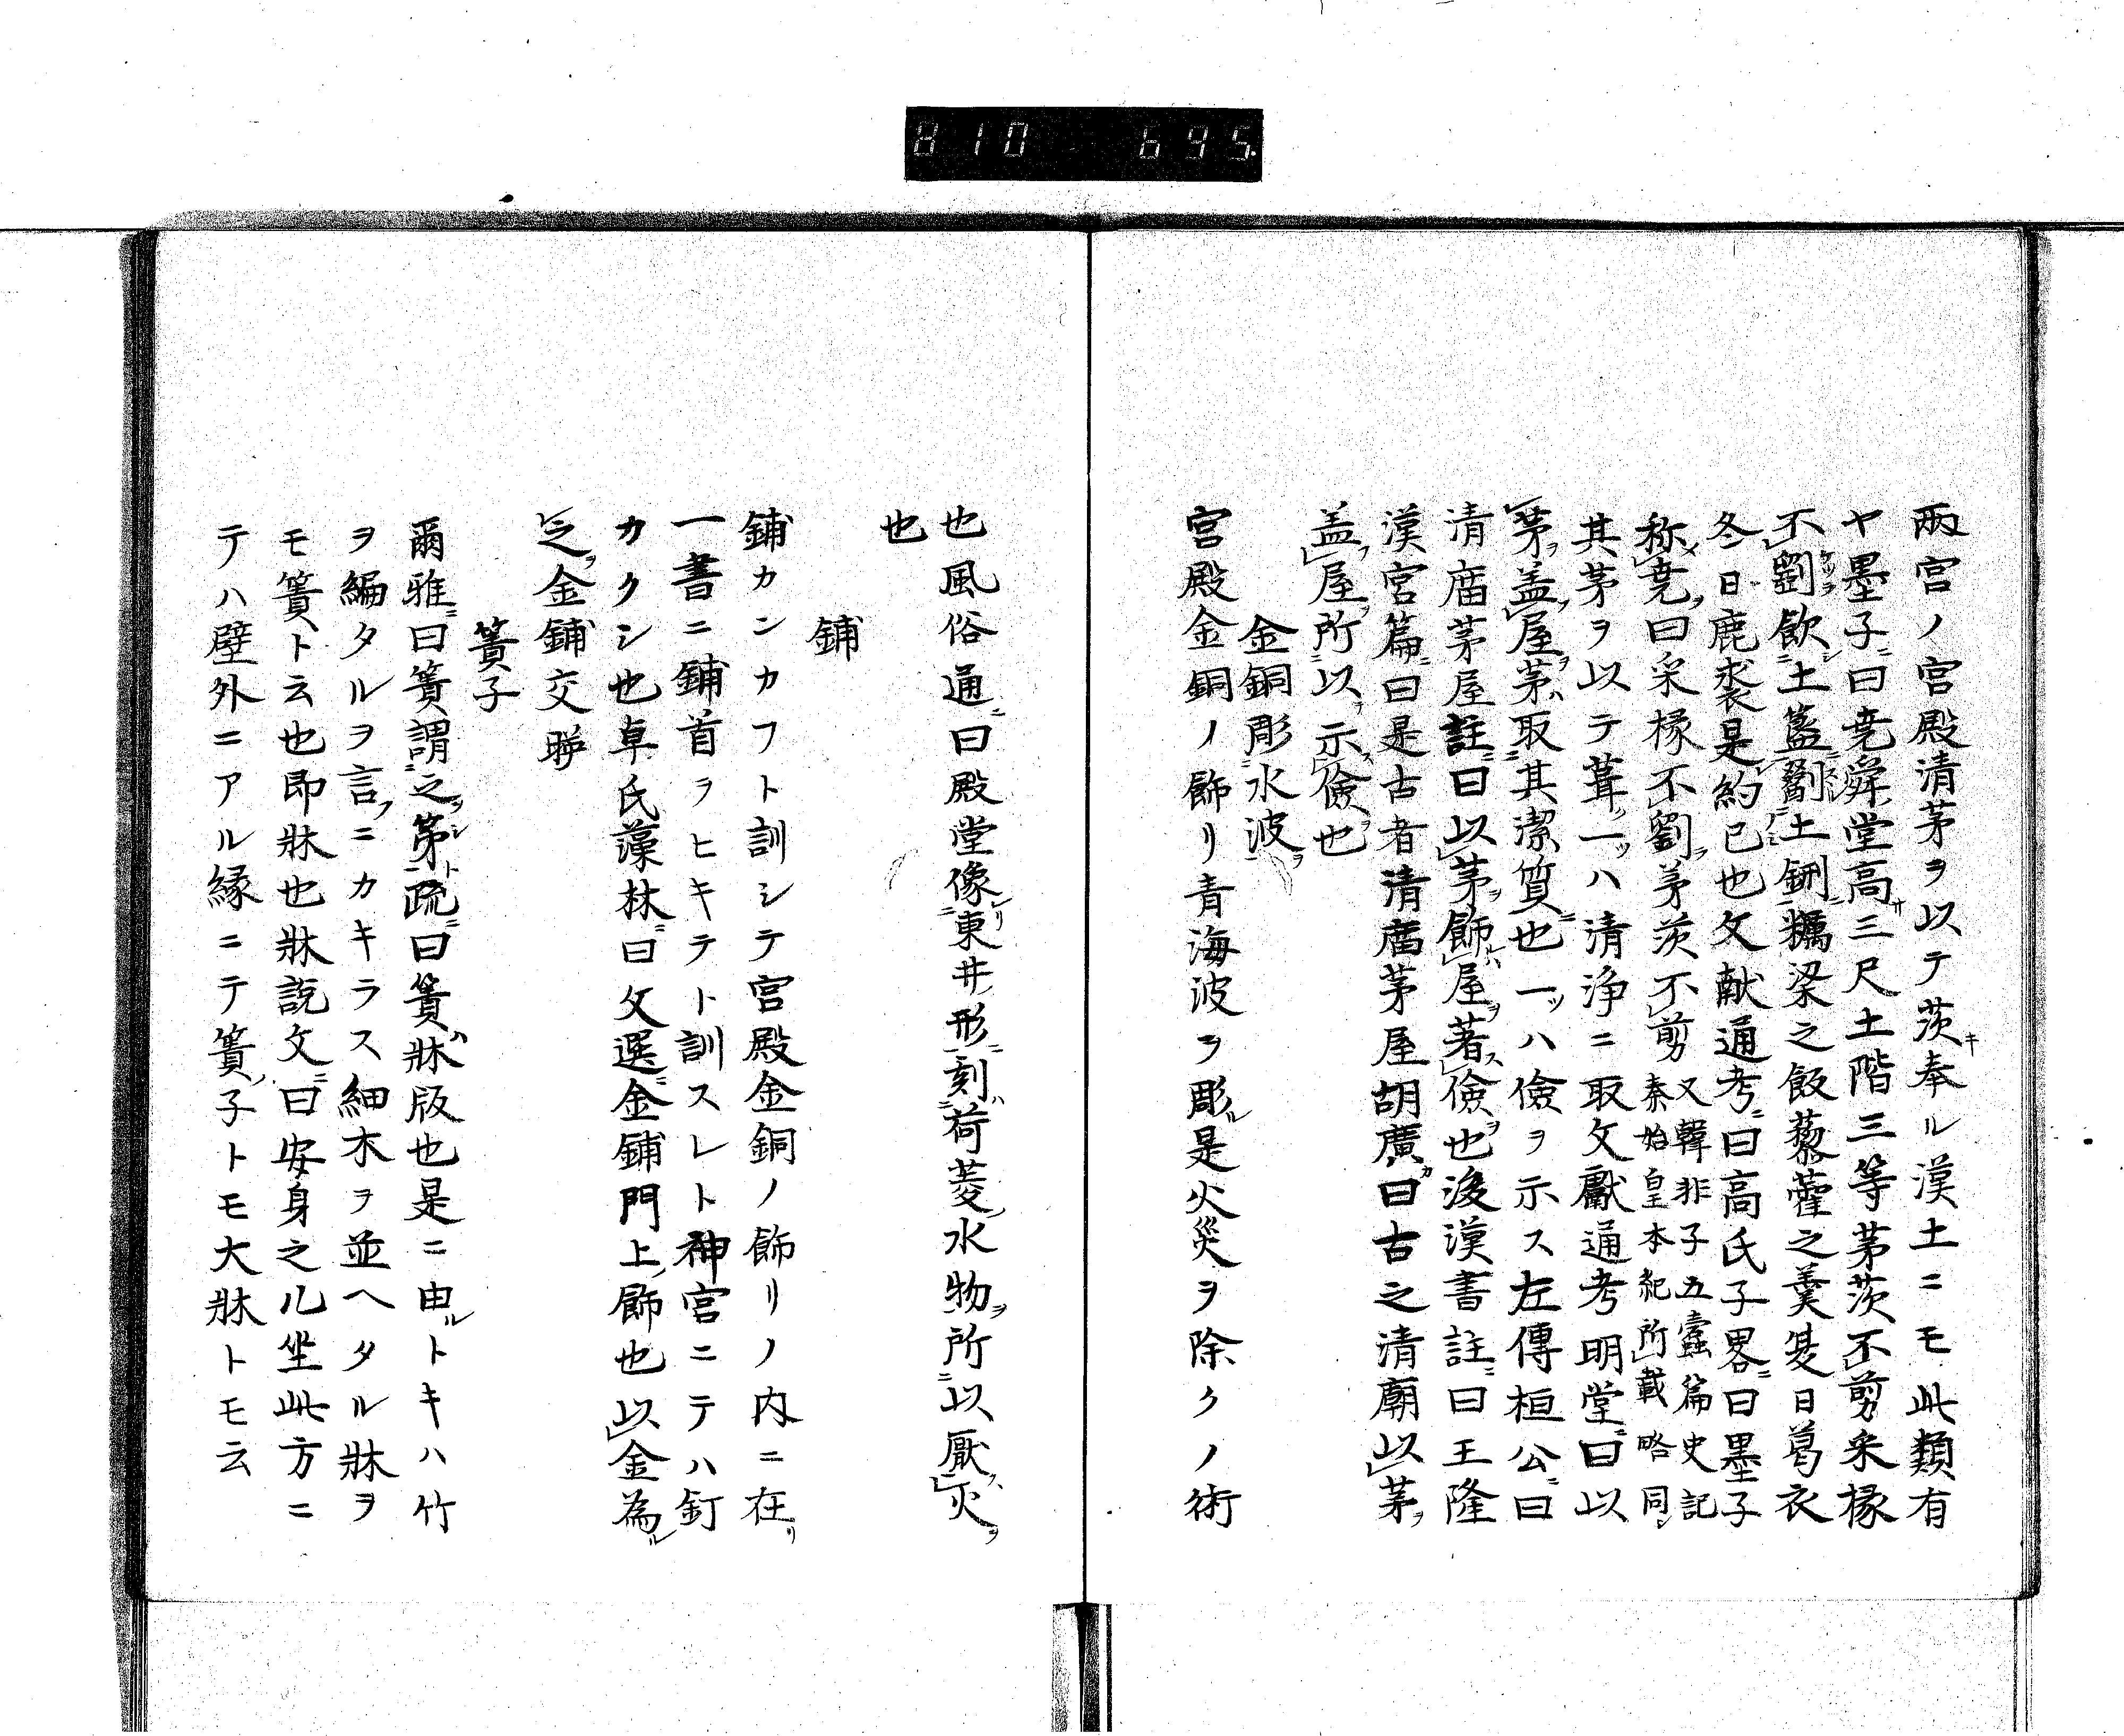 810 695
両宮ノ宮殿清茅ヲ以テ茨奉ル漢土ニモ此類有
ヤ墨子ニ曰尭舜堂高サ三尺土階三等茅茨不剪采椽
不劉飲土簋劉土鉶糲粱之飯藜藿之羹夏日葛衣
冬日鹿裘是約已也文献通考ニ曰高氏子畧ニ曰墨子
称尭曰采椽不劉茅茨不剪又韓非子五蠹篇史記
秦始皇本紀所載略同シ
其茅ヲ以テ葺一ツハ清浄ニ取文獻通考明堂ニ曰以
茅盖屋茅ハ取其潔質也一ツハ儉ヲ示ス左傳桓公ニ曰
清庿茅屋註ニ曰以茅飾屋著儉也後漢書註ニ曰王隆
漢宮篇ニ曰是古者清庿茅屋胡廣カ曰古之清廟以茅
盖屋所以示儉也
金銅彫水波
宮殿金銅ノ飾リ青海波ヲ彫ル是火災ヲ除クノ術
也風俗通ニ曰殿堂像東井形刻荷菱水物所以厭火
也
鋪
鋪カンカフト訓シテ宮殿金銅ノ飾リノ内ニ在リ
一書ニ鋪首ヲヒキテト訓スレト神宮ニテハ釘
カクシ也卓氏藻林ニ曰文選金鋪門上飾也以金為ル
之金鋪交睇
簀子
爾雅ニ曰簀謂之第疏ニ曰簀牀版也是ニ由ルトキハ竹
ヲ編タルヲ言ニカキラス細木ヲ並ヘタル牀ヲ
モ簀ト云也即牀也牀説文ニ曰安身之几坐此方ニ
テハ壁外ニアル縁ニテ簀子トモ大牀トモ云